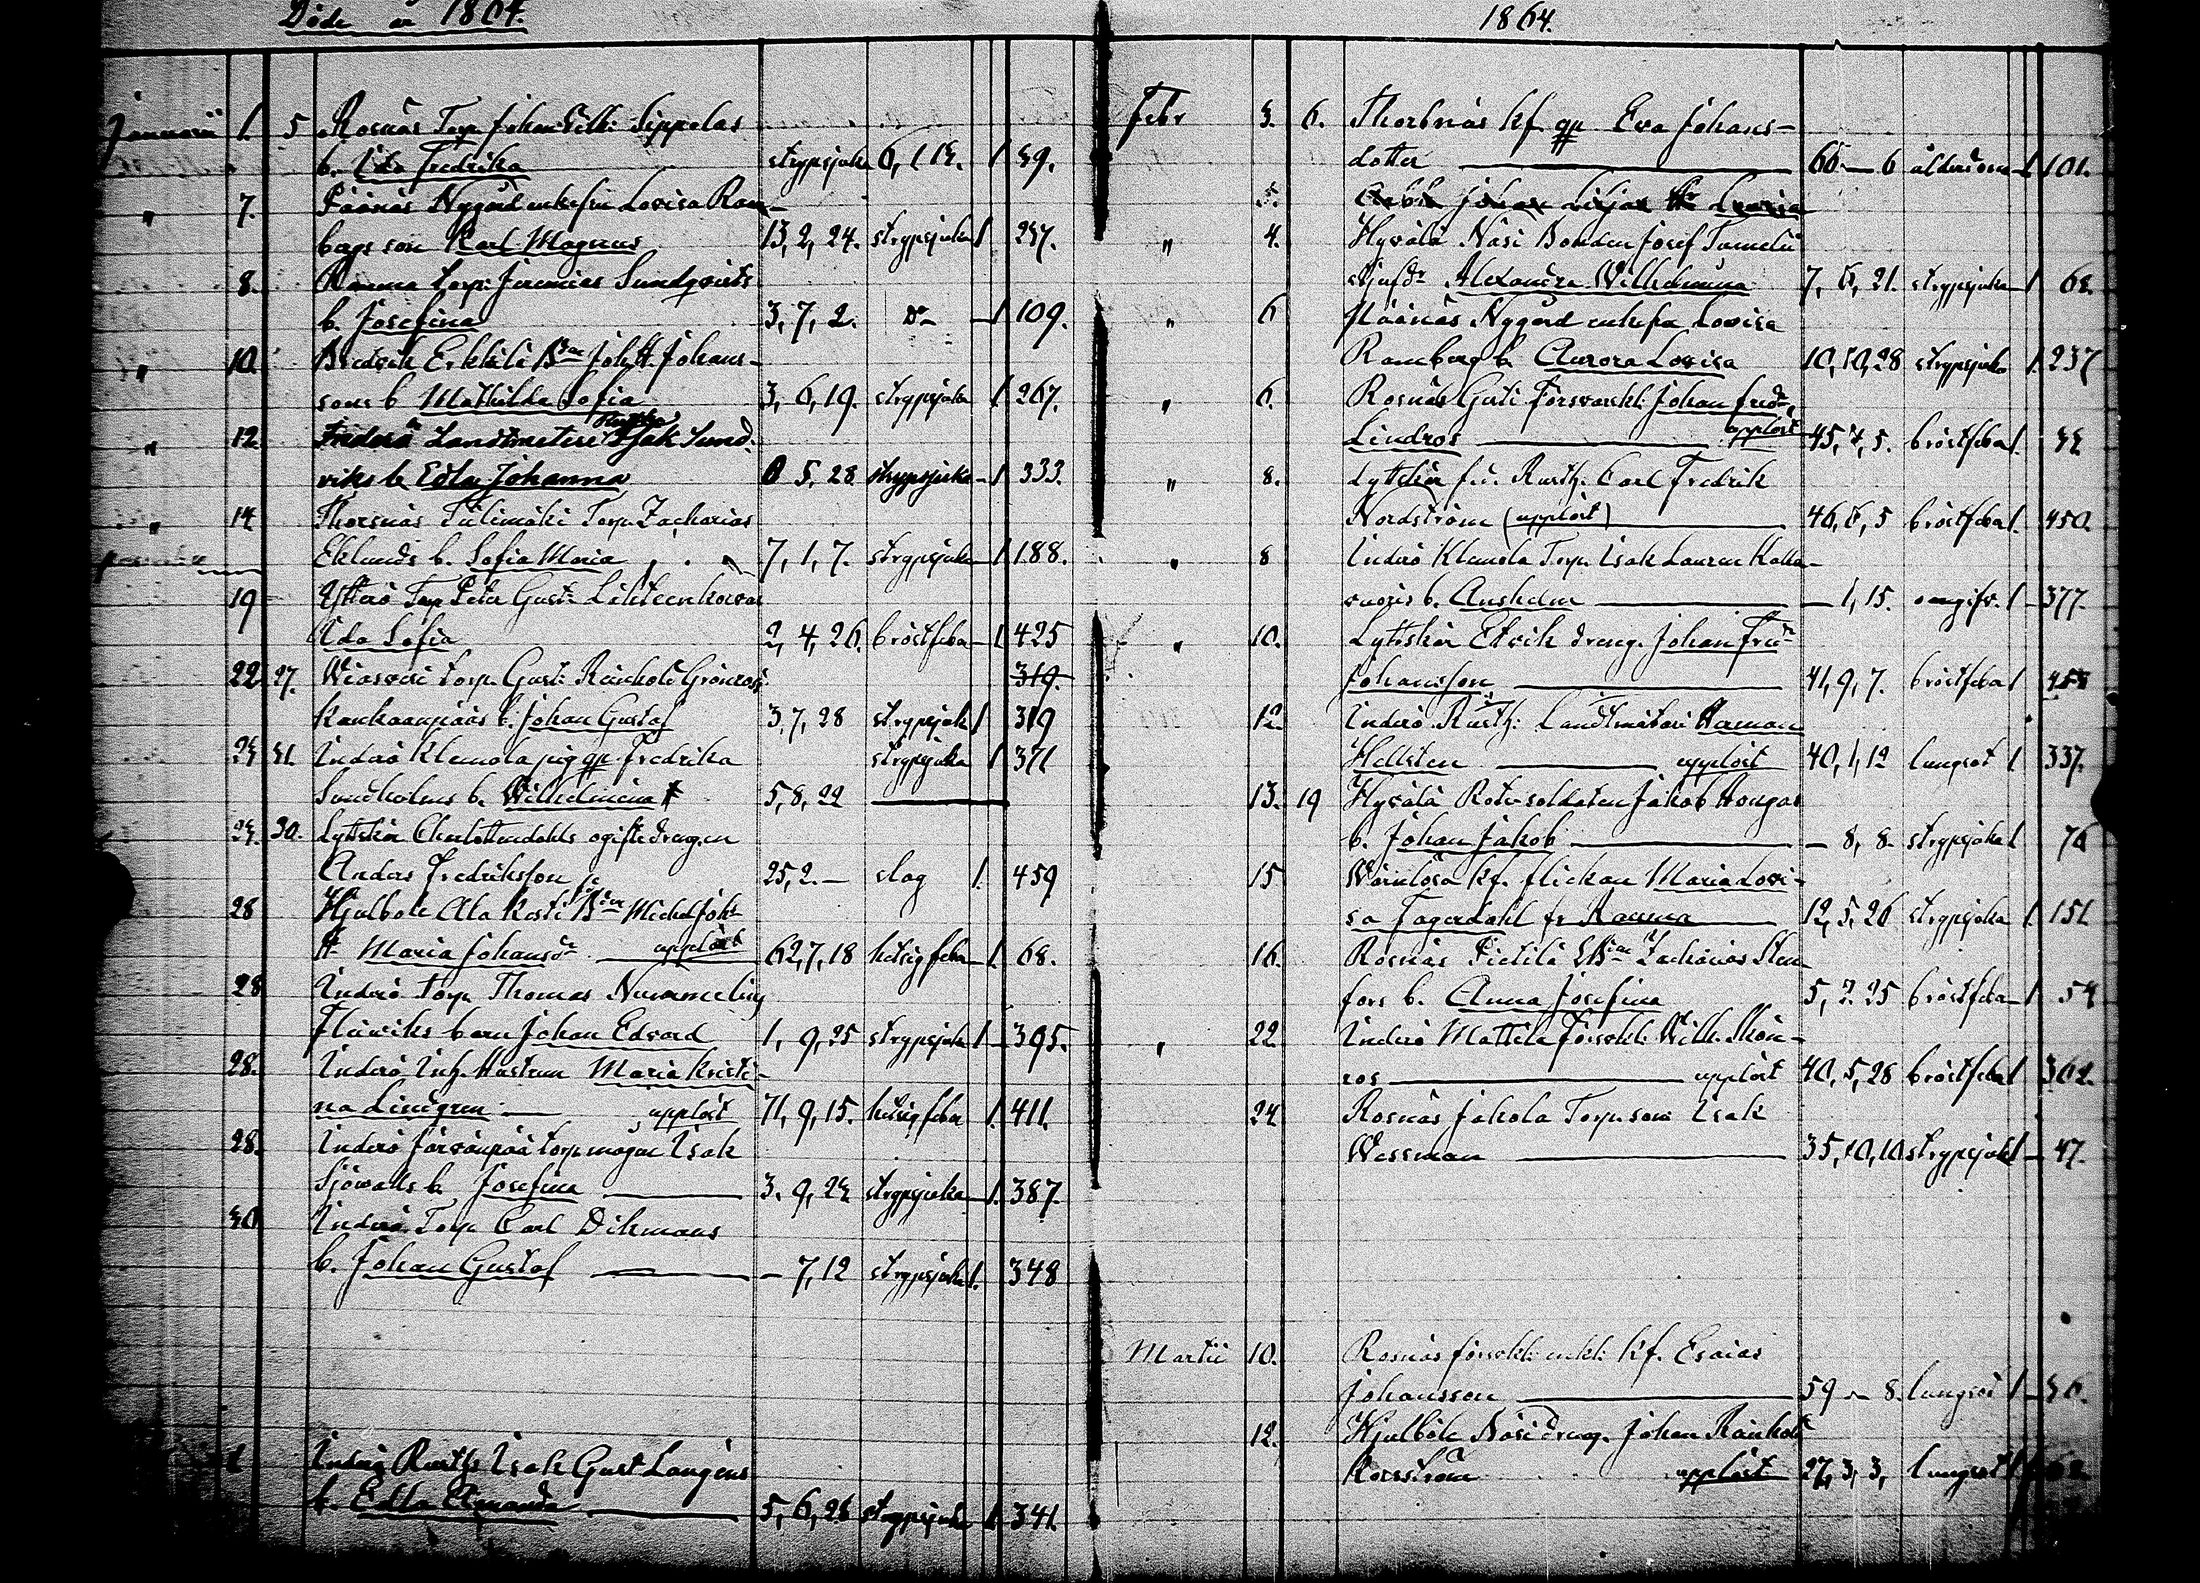 Döde år 1864.
Januarii 1. 5 Rosnäs Torp. Johan Wilh: Sippolas
b. Ida Fredrika strypsjuka 6, 1 1 1 39.
" 7. Päänäs Nygård enkefru Lovisa Ram-
bergs son Karl Magnus 13, 2, 24. strypsjuka 1 237.
8. Torp. Jeremias Sundqvists
b. Josefina 3, 7, 2. Do 1 109.
" 10. Bredvik Erkkilä Bdn Joh. H. Johans-
sons b Mathilda Sofia 3, 6, 19. strypsjuka 1 267.
" 12. Inderö Landtmäteri Isak Sund-
viks b Edla Johanna 0 5, 28 strypsjuka 1 333.
" 14 Thorsnäs Tulimäki Torp. Zacharias
Eklunds b. Sofia Maria 7, 1, 7. strypsjuka 1 188.
19 Ytterö Torp Peter Gust:
Ida Sofia 2, 4, 26. bröstfeber 1 425
22 27. Torp. Gust: Reinhold Grönroos 319.
Kankaanpääs b. Johan Gustaf 3, 7, 28 strypsjuk 1 319
31. Inderö Klemola pig Fredrika strypsjuka 1 371
Sundholms b. Wilhelmina 5, 8, 22
30. Lyttskär Charlottendahls ogifte drengen
Anders Fredriksson 25, 2. — slag 1. 459
28 Hjulböle Ala Kosti Michel Joh:
H. Maria Johansdr upplöst 62, 7, 18 hetsig feber 1. 68.
28 Inderö Torp Thomas Nummelin
barn Johan Edvard 1, 9, 25 strypsjuka 1 395.
28. Inderö Inh. Hustrun Maria Kristi-
na Lindgren — upplöst 71, 9, 15. hetsig feber 1. 411.
28. Inderö Järvänpää Torp. mågen Isak
Sjövalls b. Josefina 3. 9, strypsjuka 1. 387.
30 Inderö Torp Carl Dikmans
b. Johan Gustaf — 7, 12 strypsjuka 1. 348
Inderö Rusth. Isak Gust Langens
b. Edla Amanda 5, 6, 26 strypsjuka 1. 341.
1864.
Febr 3. 6. Thorbnäs kf. Eva Johans-
dotter 66 — 6 ålderdom 1 101.
" 4. Hyvälä Näsi Bonden Josef
Alexandra Wilhelmina 7, 6, 21. strypsjuka 1 68.
" 6 Päänäs Nygård enkefru Lovisa
Ramberg b. Aurora Lovisa 10, 10, 28 strypsjuka 1. 237
" 6. Rosnäs Försvarskl: Johan Fredr
Lindros upplöst 45, 7, 5. bröstfeber 1.
" 8. Lyttskär Rusth. Carl Fredrik
Nordström (upplöst) 46, 6, 5 bröstfeber 1. 450.
" 8 Inderö Klemola Torp. Isak Lauren Kalla-
vuoris b. Anshelm — 1, 15. 1 377.
" 10. Lyttskär Etvik dreng. Johan Fred
Johansson 41, 9, 7. bröstfeber 1
12 Inderö Rusth: Landtmäteri Herman
Hellsten upplöst 40, 1, 12 lungsot 1 337.
13. 19 Hyvälä Rotesoldaten Jakob Hongas
b. Johan Jakob — 8, 8. strypsjuka 1 76
15 kf. flickan Maria Lovi-
sa Fagerdahl fr Rauma 12, 5, 26 strypsjuka 1. 151
16. Rosnäs Pietilä Zacharias Sten-
fors b. Anna Josefina 5, 2. 25 bröstfeber 1. 54
" 22 Inderö Mattila försvkl: Wilh. Skön-
ros upplöst 40, 5, 28 bröstfeber 1
24 Rosnäs Jakola Torp. son Isak
Wessman 35, 10, 10 strypsjuk 1 47.
Martii 10. Rosnäs försvkl: enkl: kf. Esaias
Johansson 59 — 8. lungsot 1
12. Hjulböle Näsi dreng. Johan Reinhold
upplöst 27, 3, 3, lungsot 1